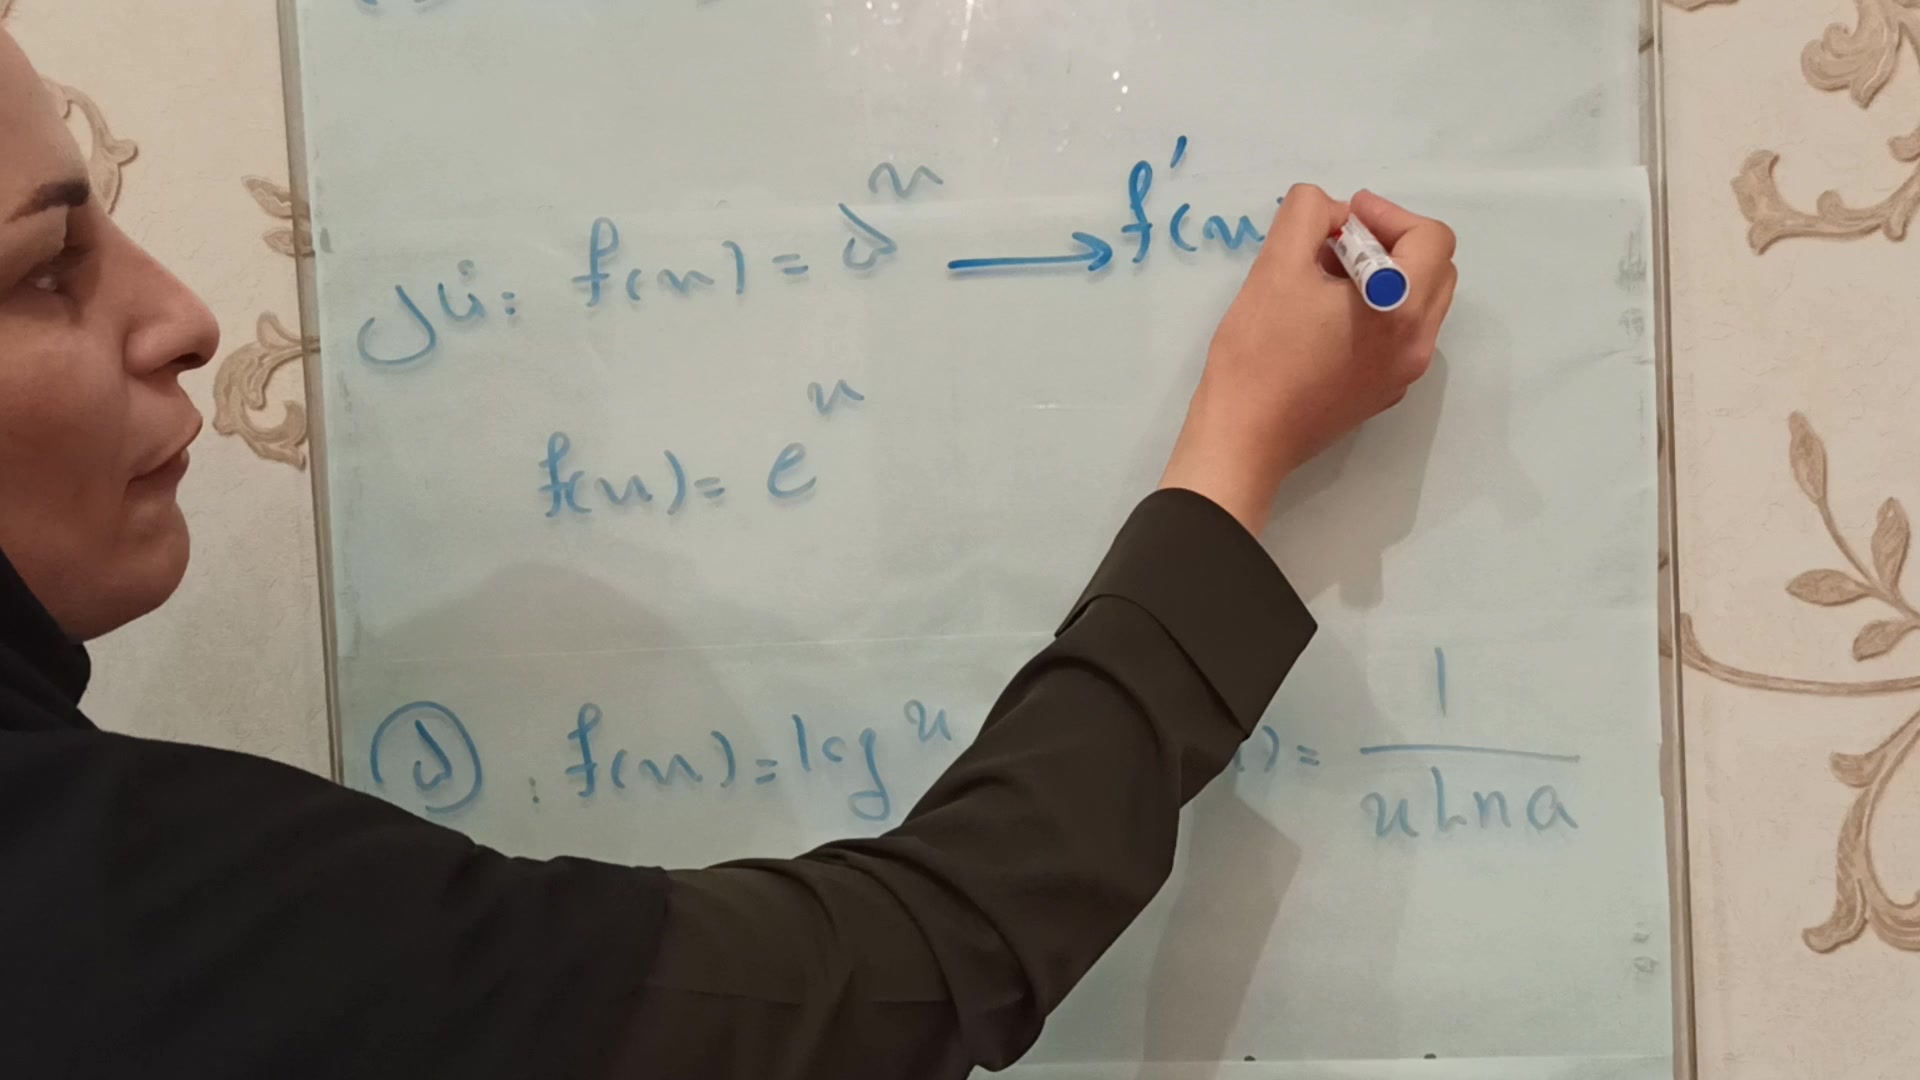 مثال: f(x) = ۵^x ⟶ f'(x)
f(x) = e^x
۵ : f(x) = log x ) = 1 / x Ln a